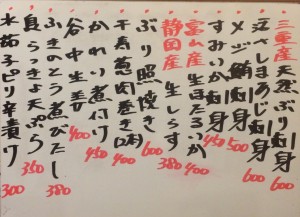 三重産 天然ぶり刺身 600
活〆しまあじ刺身 600
メジ鮪刺身 500
すみいか刺身 450
富山産 生ほたるいか 400
静岡産 生しらす 380
ぶり照焼き 600
千寿葱肉巻き 400
かれい煮付け 450
谷中生姜 400
ふきのとう煮びたし 380
島らっきょ天ぷら 350
水茄子ピリ辛漬け 300